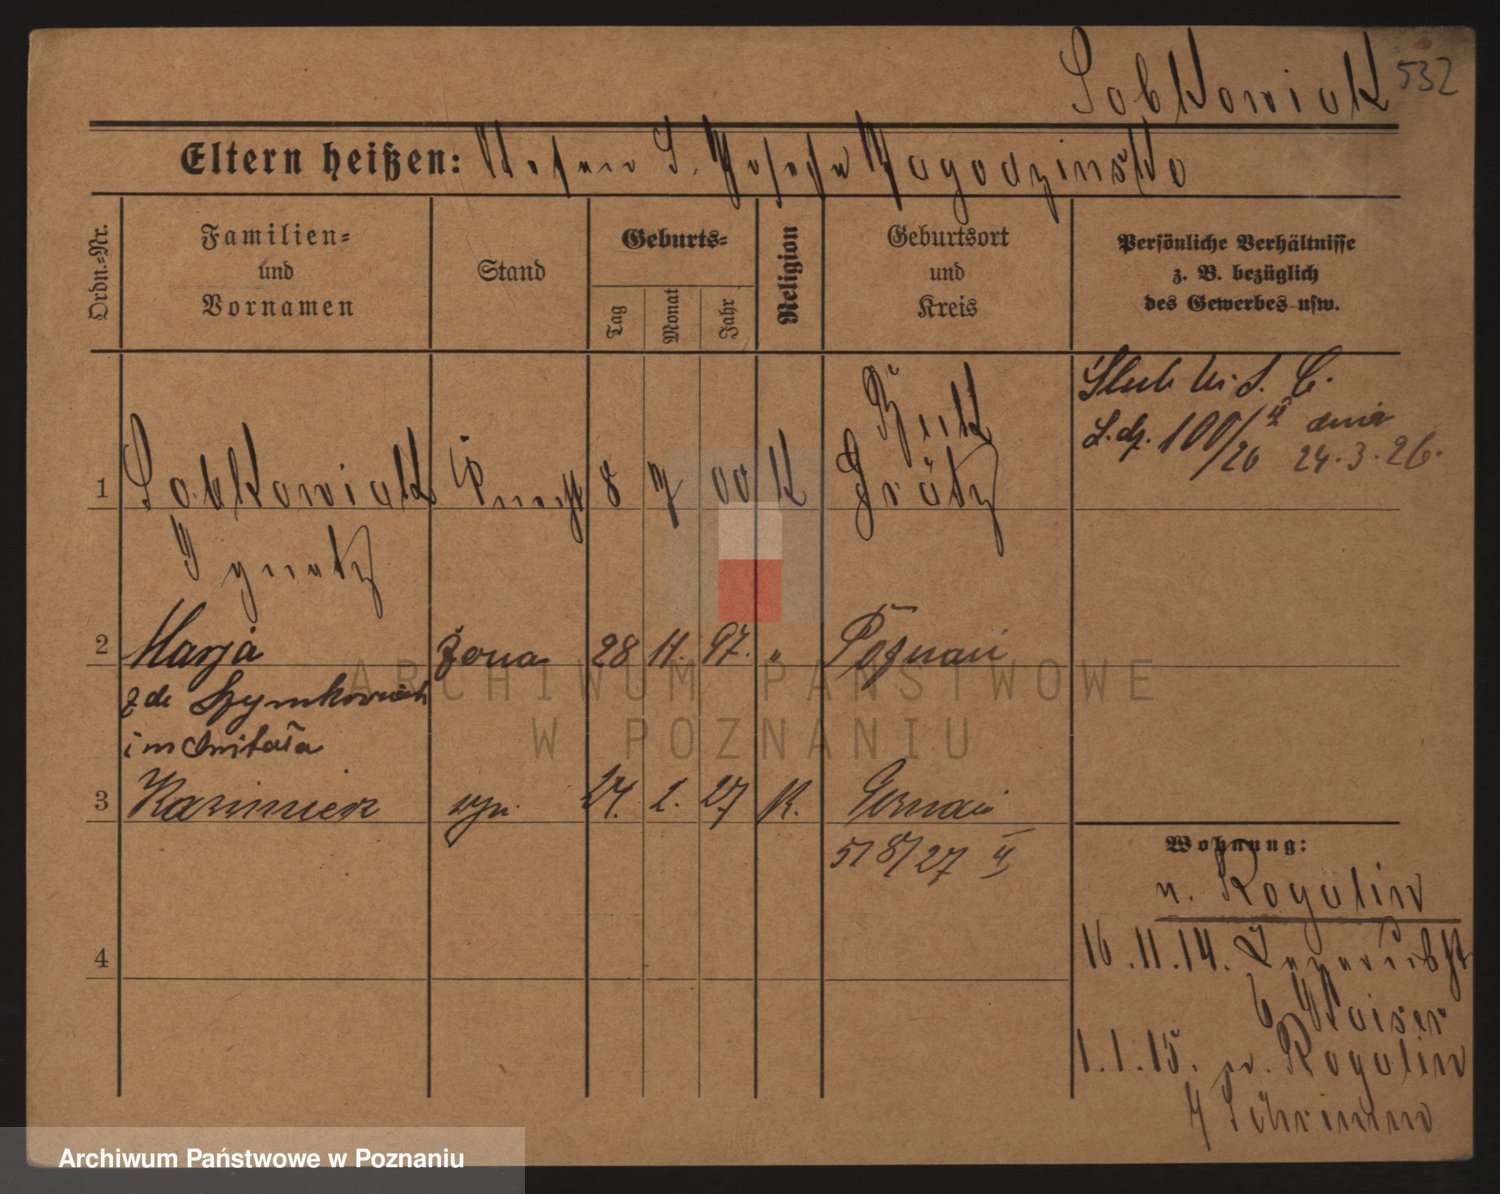 Sobkowiak 532
Eltern heißen: Stefan S. Josefa Jagodzinska
Ordn.-Nr.
Familien-
und
Vornamen
Stand
Geburts-
Tag
Monat
Jahr
Religion
Geburtsort
und
Kreis
Persönliche Verhältnisse
z. B. bezüglich
des Gewerbes usw.
L. dz. 100/26 II dnia 24.3.26.
1 Sobkowiak Knecht 8 7 00 K
Grätz
Ignatz
2 Marja żona 28 11. 97. " Poznań
z d. Szymkowiak
3 Kazimierz syn 24. 2. 27 K. Poznań
5/8/27 II
4
Wohnung:
n. Rogalin
16.11.14.
b Kaiser
1.1.15. n. Rogalin
Schrimm
ARCHIWUM PAŃSTWOWE
W POZNANIU
Archiwum Państwowe w Poznaniu